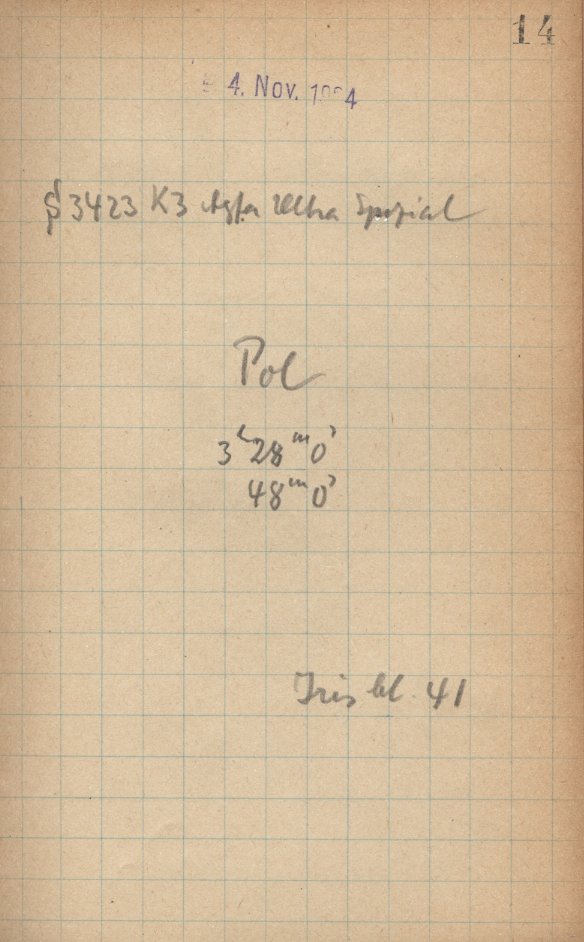 14
4. Nov. 19
§ 3423 K3 Agfa Ultra Spezial
Pol
3ʰ28ᵐ0ˢ
48ᵐ0ˢ
Irisbl. 41